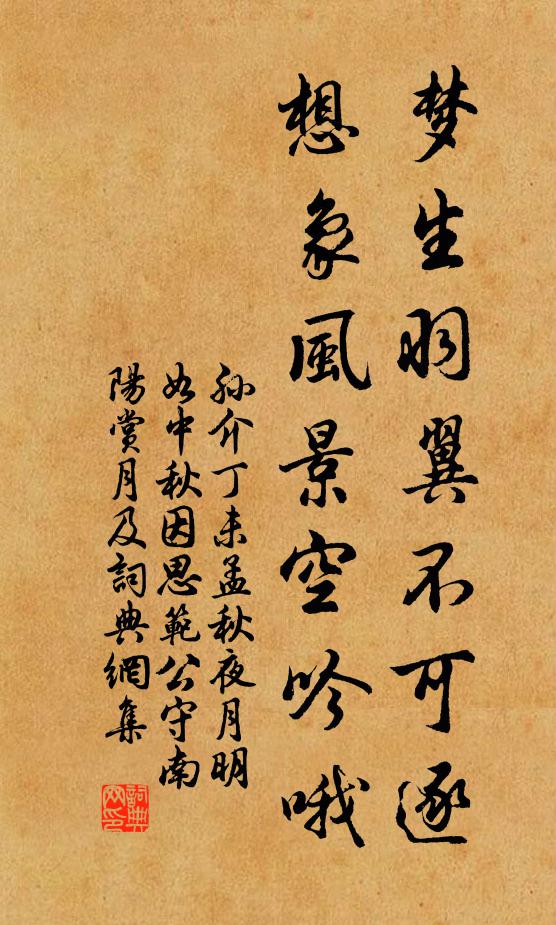 梦生羽翼不可逐
想象風景空吟哦
孫介丁未孟秋夜月明
如中秋因思範公守南
陽賞月及詞典網集
詞典
网印